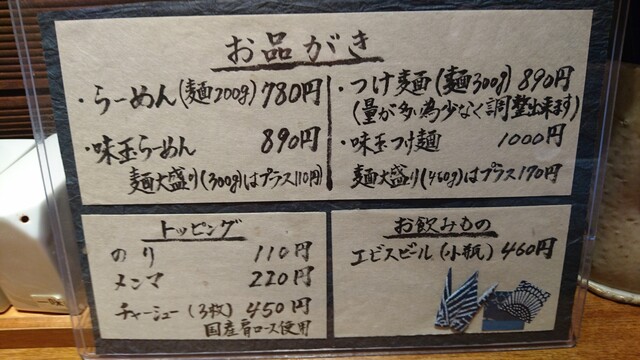 お品がき
・らーめん(麺200g) 780円
・味玉らーめん 890円
麺大盛り(300g)はプラス110円
・つけ麺(麺300g) 890円
(量が多い為少なく調整出来ます)
・味玉つけ麺 1000円
麺大盛り(450g)はプラス170円
トッピング
のり 110円
メンマ 220円
チャーシュー(3枚) 450円
国産肩ロース使用
お飲みもの
エビスビール(小瓶) 460円